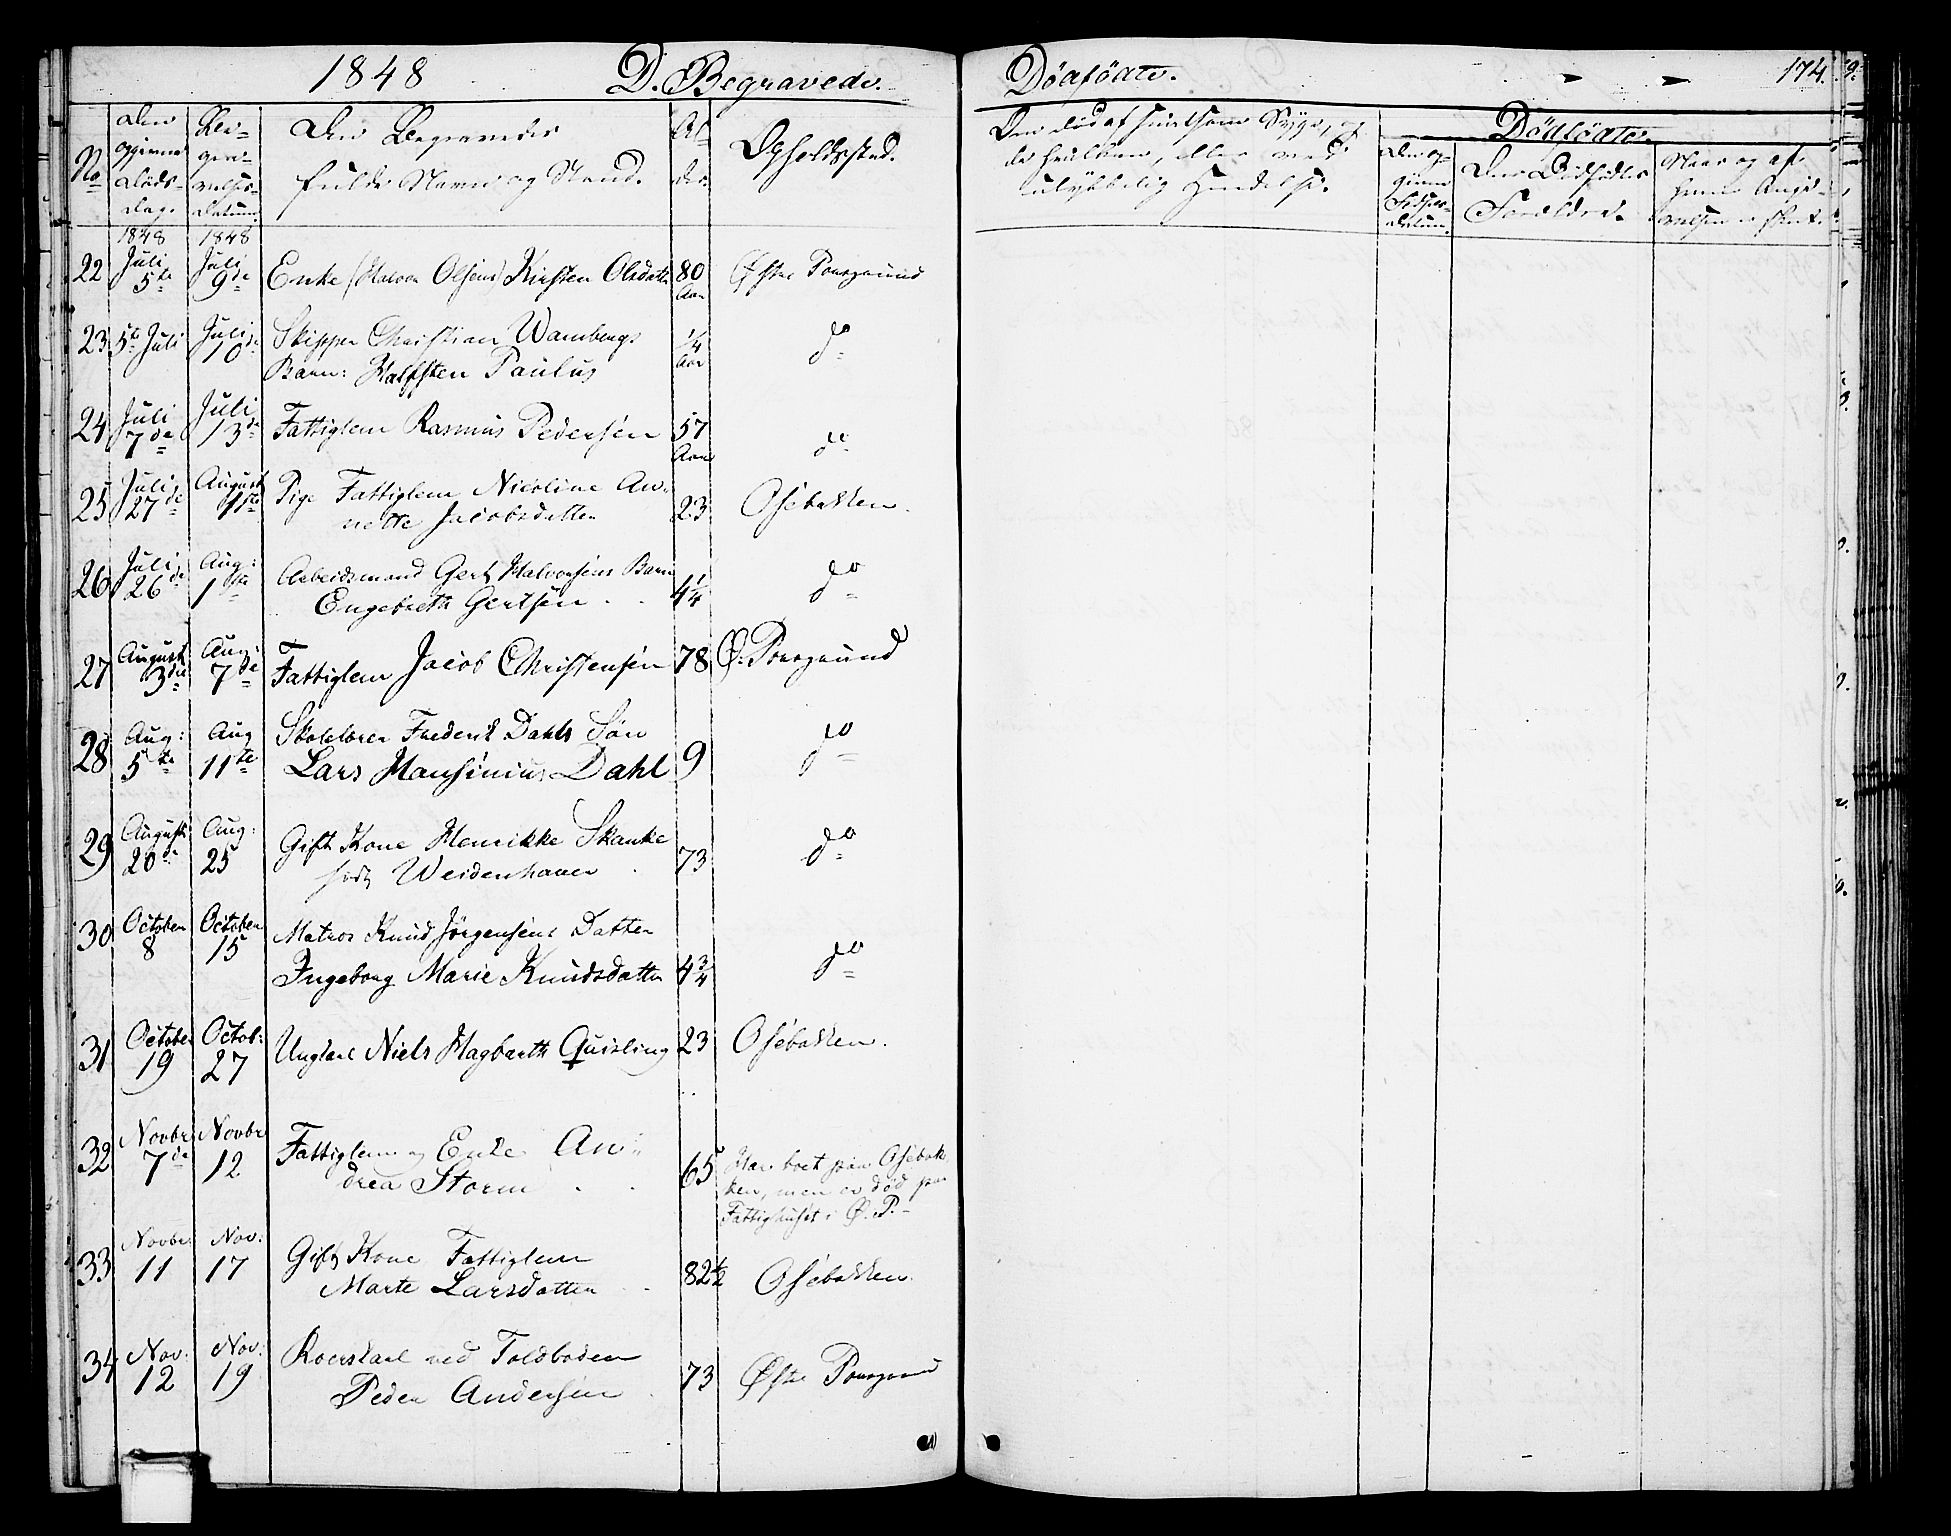 1848 D. Begravede.
No
Den opgivne Døds-Dag.
Be-gra-velses-Datum.
Den Begravedes fulde Navn og Stand.
Al-der.
Opholdssted.
1848 1848
22 Juli 5te Juli 9de Enke (Halvor Olsens) Kirsten Olsdatter 80 Aar Østre Porsgrund
23 5te Juli Juli 10de Skipper Christian Wambergs
Barn: Halfsten Paulus 1/4 Aar do
24 Juli 7de Juli 13de Fattiglem Rasmus Pedersen 57 Aar do
25 Juli 27de August 1ste Pige Fattiglem Nicoline An-
nette Jacobsdatter 23 Osebakken.
26 Juli 26de Aug: 1ste Arbeidsmand Gert Halvorsens Barn
Engebreth Gertsen 4 1/4 do
27 August 3die Aug: 7de Fattiglem Jacob Christensen 78 Ø. Porsgrund
28 Aug: 5te Aug 11te Skolelærer Frederik Dahls Søn
Lars Hansinius Dahl 9 do
29 August 20de Aug: 25 Gift Kone Henrikke Skanke
født Weidenhauer 73 do
30 October 8 October 15 Matros Knud Jörgensens Datter
Ingeborg Marie Knudsdatter 4 3/4 do
31 October 19 Octob: 27 Ungkarl Niels Hagbarth Quisling 23 Osebakken.
32 Novbr 7de Novbr 12 Fattiglem og Enke An-
drea Storm 65 Har boet paa Osebak-
ken, men er død paa
Fattighuset i Ø. P.
33 Novbr 11 Nov: 17 Gift Kone Fattiglem
Marte Larsdatter 82 1/2 Osebakken.
34 Nov: 12 Nov: 19 Roerskarl ved Toldboden
Peder Andersen 73 Østre Porsgrund
Dødfødte. 174.
Den død af smitsom Syge, og
de hvilken, eller ved
ulykkelig Hændelse.
Dødfødte.
Den op-givne Fødsels-Datum.
Den Dødfødtes
Forældre.
Naar og af
hvem Angi-
velsen er skeet.